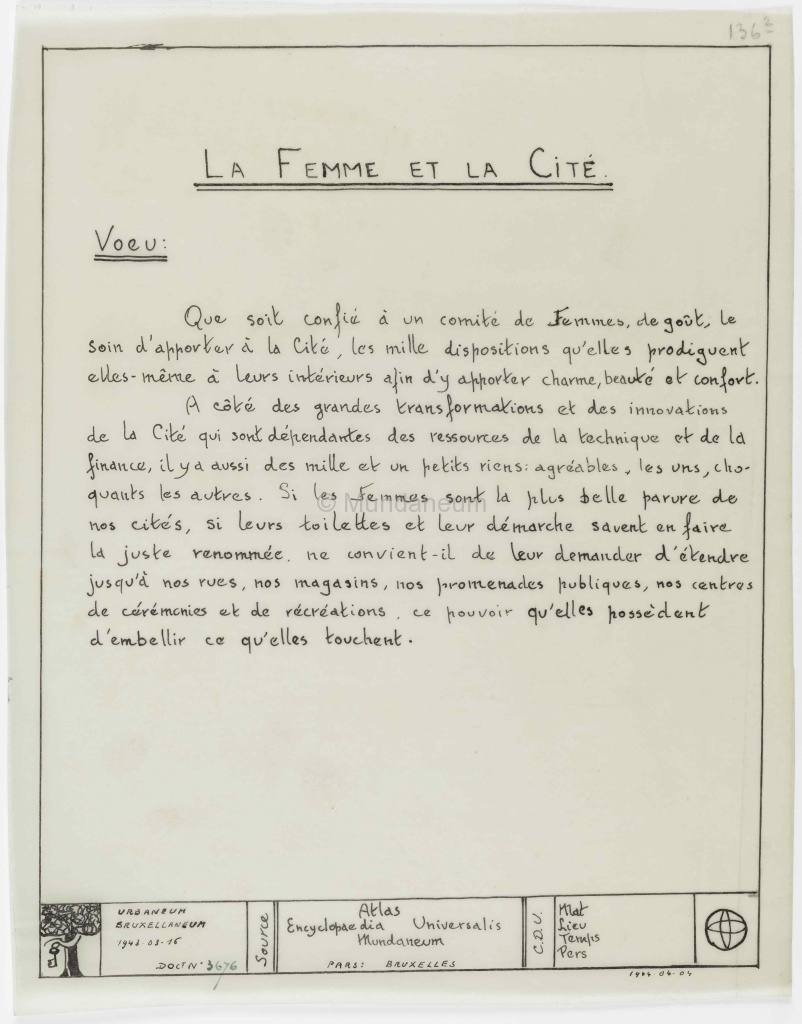 136²
LA FEMME ET LA CITÉ.
Voeu:
Que soit confié à un comité de Femmes, de goût, le
soin d'apporter à la Cité, les mille dispositions qu'elles prodiguent
elles-même à leurs intérieurs afin d'y apporter charme, beauté et confort.
A côté des grandes transformations et des innovations
de la Cité qui sont dépendantes des ressources de la technique et de la
finance, il y a aussi des mille et un petits riens: agréables, les uns, cho-
quants les autres. Si les Femmes sont la plus belle parure de
© Mundaneum
nos cités, si leurs toilettes et leur démarche savent en faire
la juste renommée, ne convient-il de leur demander d'étendre
jusqu'à nos rues, nos magasins, nos promenades publiques, nos centres
de cérémonies et de récréations, ce pouvoir qu'elles possèdent
d'embellir ce qu'elles touchent.
URBANEUM
BRUXELLANEUM
1943.03.16
DOCT N° 3676
Source
Atlas
Encyclopaedia Universalis
Mundaneum
PARS: BRUXELLES
C.D.U.
Mat
Lieu
Temps
Pers